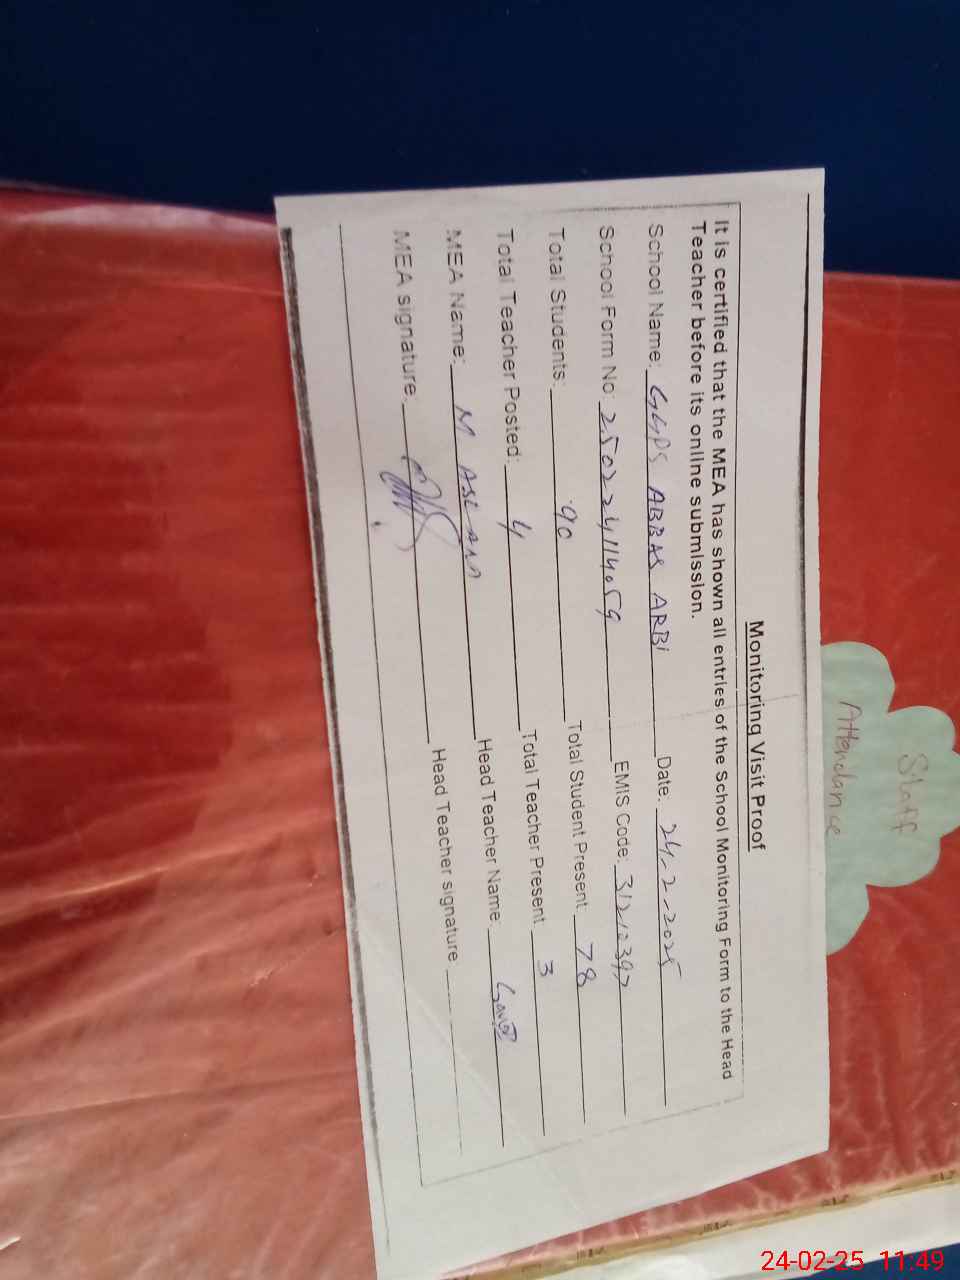 Staff
Attendance
Monitoring Visit Proof
It is certified that the MEA has shown all entries of the School Monitoring Form to the Head
Teacher before its online submission.
School Name: GGPS ABBAS ARBI Date: 24-2-2025
School Form No: 250224114059 EMIS Code: 31210397
Total Students: 90 Total Student Present 78
Total Teacher Posted: 4 Total Teacher Present 3
MEA Name: M ASLAM Head Teacher Name:
MEA signature: Head Teacher signature
24-02-25 11:49